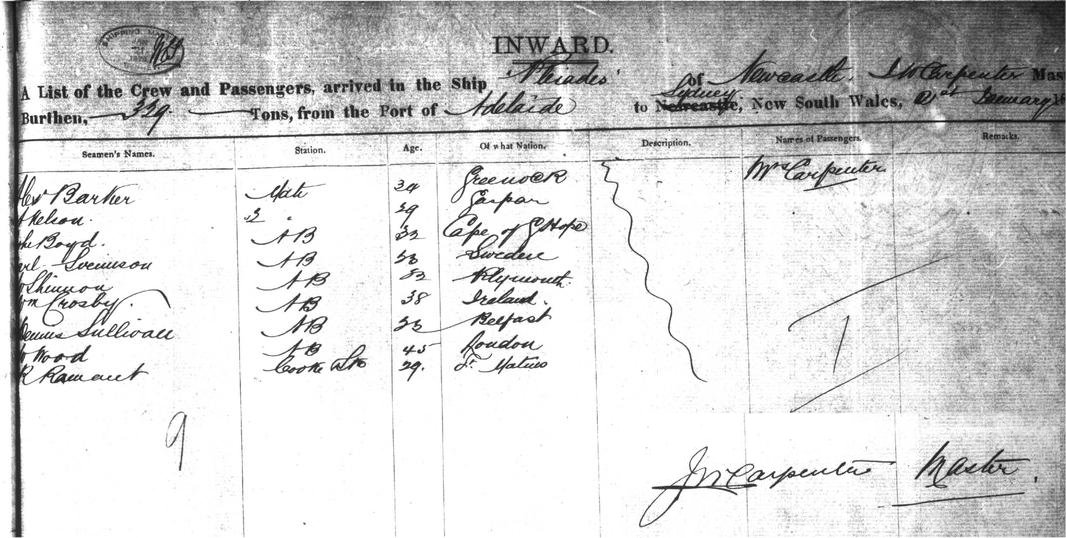 INWARD.
A List of the Crew and Passengers, arrived in the Ship "Pleiades" of Newcastle. J W Carpenter Mas
Burthen, 329 Tons, from the Port of Adelaide to Newcastle, Sydney, New South Wales, January 18
Seamen's Names. Station. Age. Of what Nation. Description. Names of Passengers. Remarks.
Mrs Carpenter
Barker Mate 34 Greenock
Nelson 2 " 39 Gaspar
Boyd. AB 32 Cape of G Hope
Svennson AB 38 Sweden
Shinnon AB 52 Plymouth
Wm Crosby. AB 38 Ireland.
Dennis Sullivan AB Belfast
Wood AB 45 London
Cook & Std 29. St
9
1
J W Carpenter Master